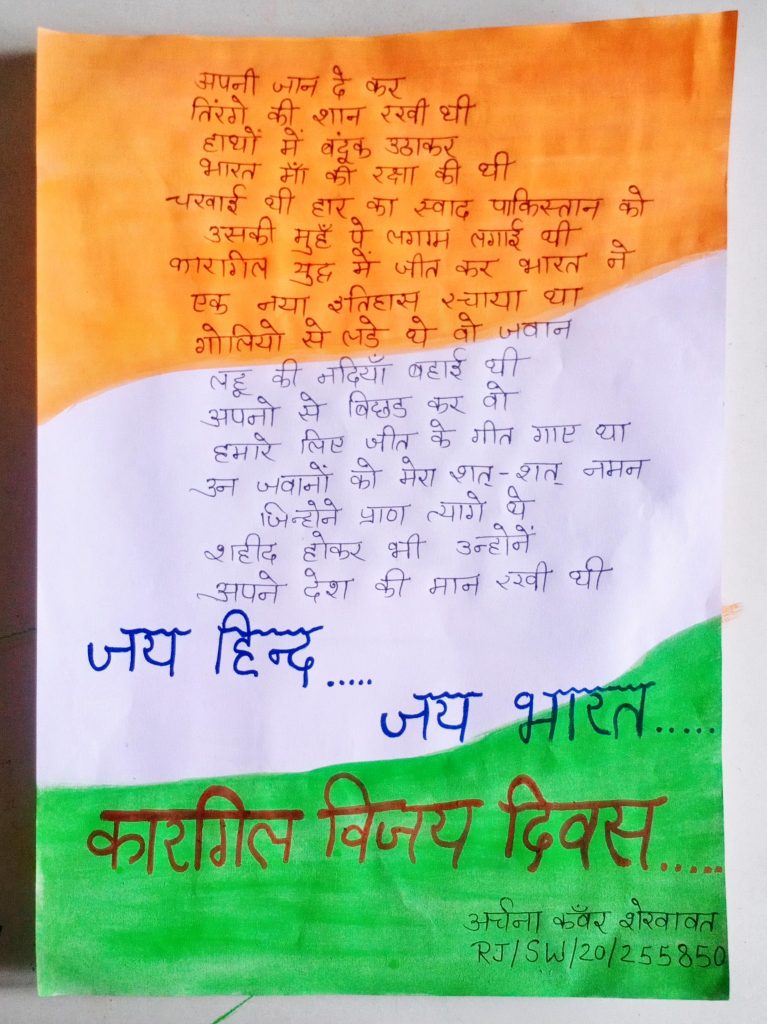 अपनी जान दे कर
तिरंगे की शान रखी थी
हाथों में बंदूक उठाकर
भारत माँ की रक्षा की थी
चखाई थी हार का स्वाद पाकिस्तान को
उसकी मुहँ पे लगाम लगाई थी
कारागिल युद्ध में जीत कर भारत ने
एक नया इतिहास रचाया था
गोलियो से लडे थे वो जवान
लहू की नदियाँ बहाई थी
अपनो से बिछड कर वो
हमारे लिए जीत के गीत गाए था
उन जवानों को मेरा शत्-शत् नमन
जिन्होने प्राण त्यागे थे
शहीद होकर भी उन्होनें
अपने देश की मान रखी थी
जय हिन्द.....
जय भारत.....
कारगिल विजय दिवस.....
अर्चना कँवर शेखावत
RJ/SW/20/255850